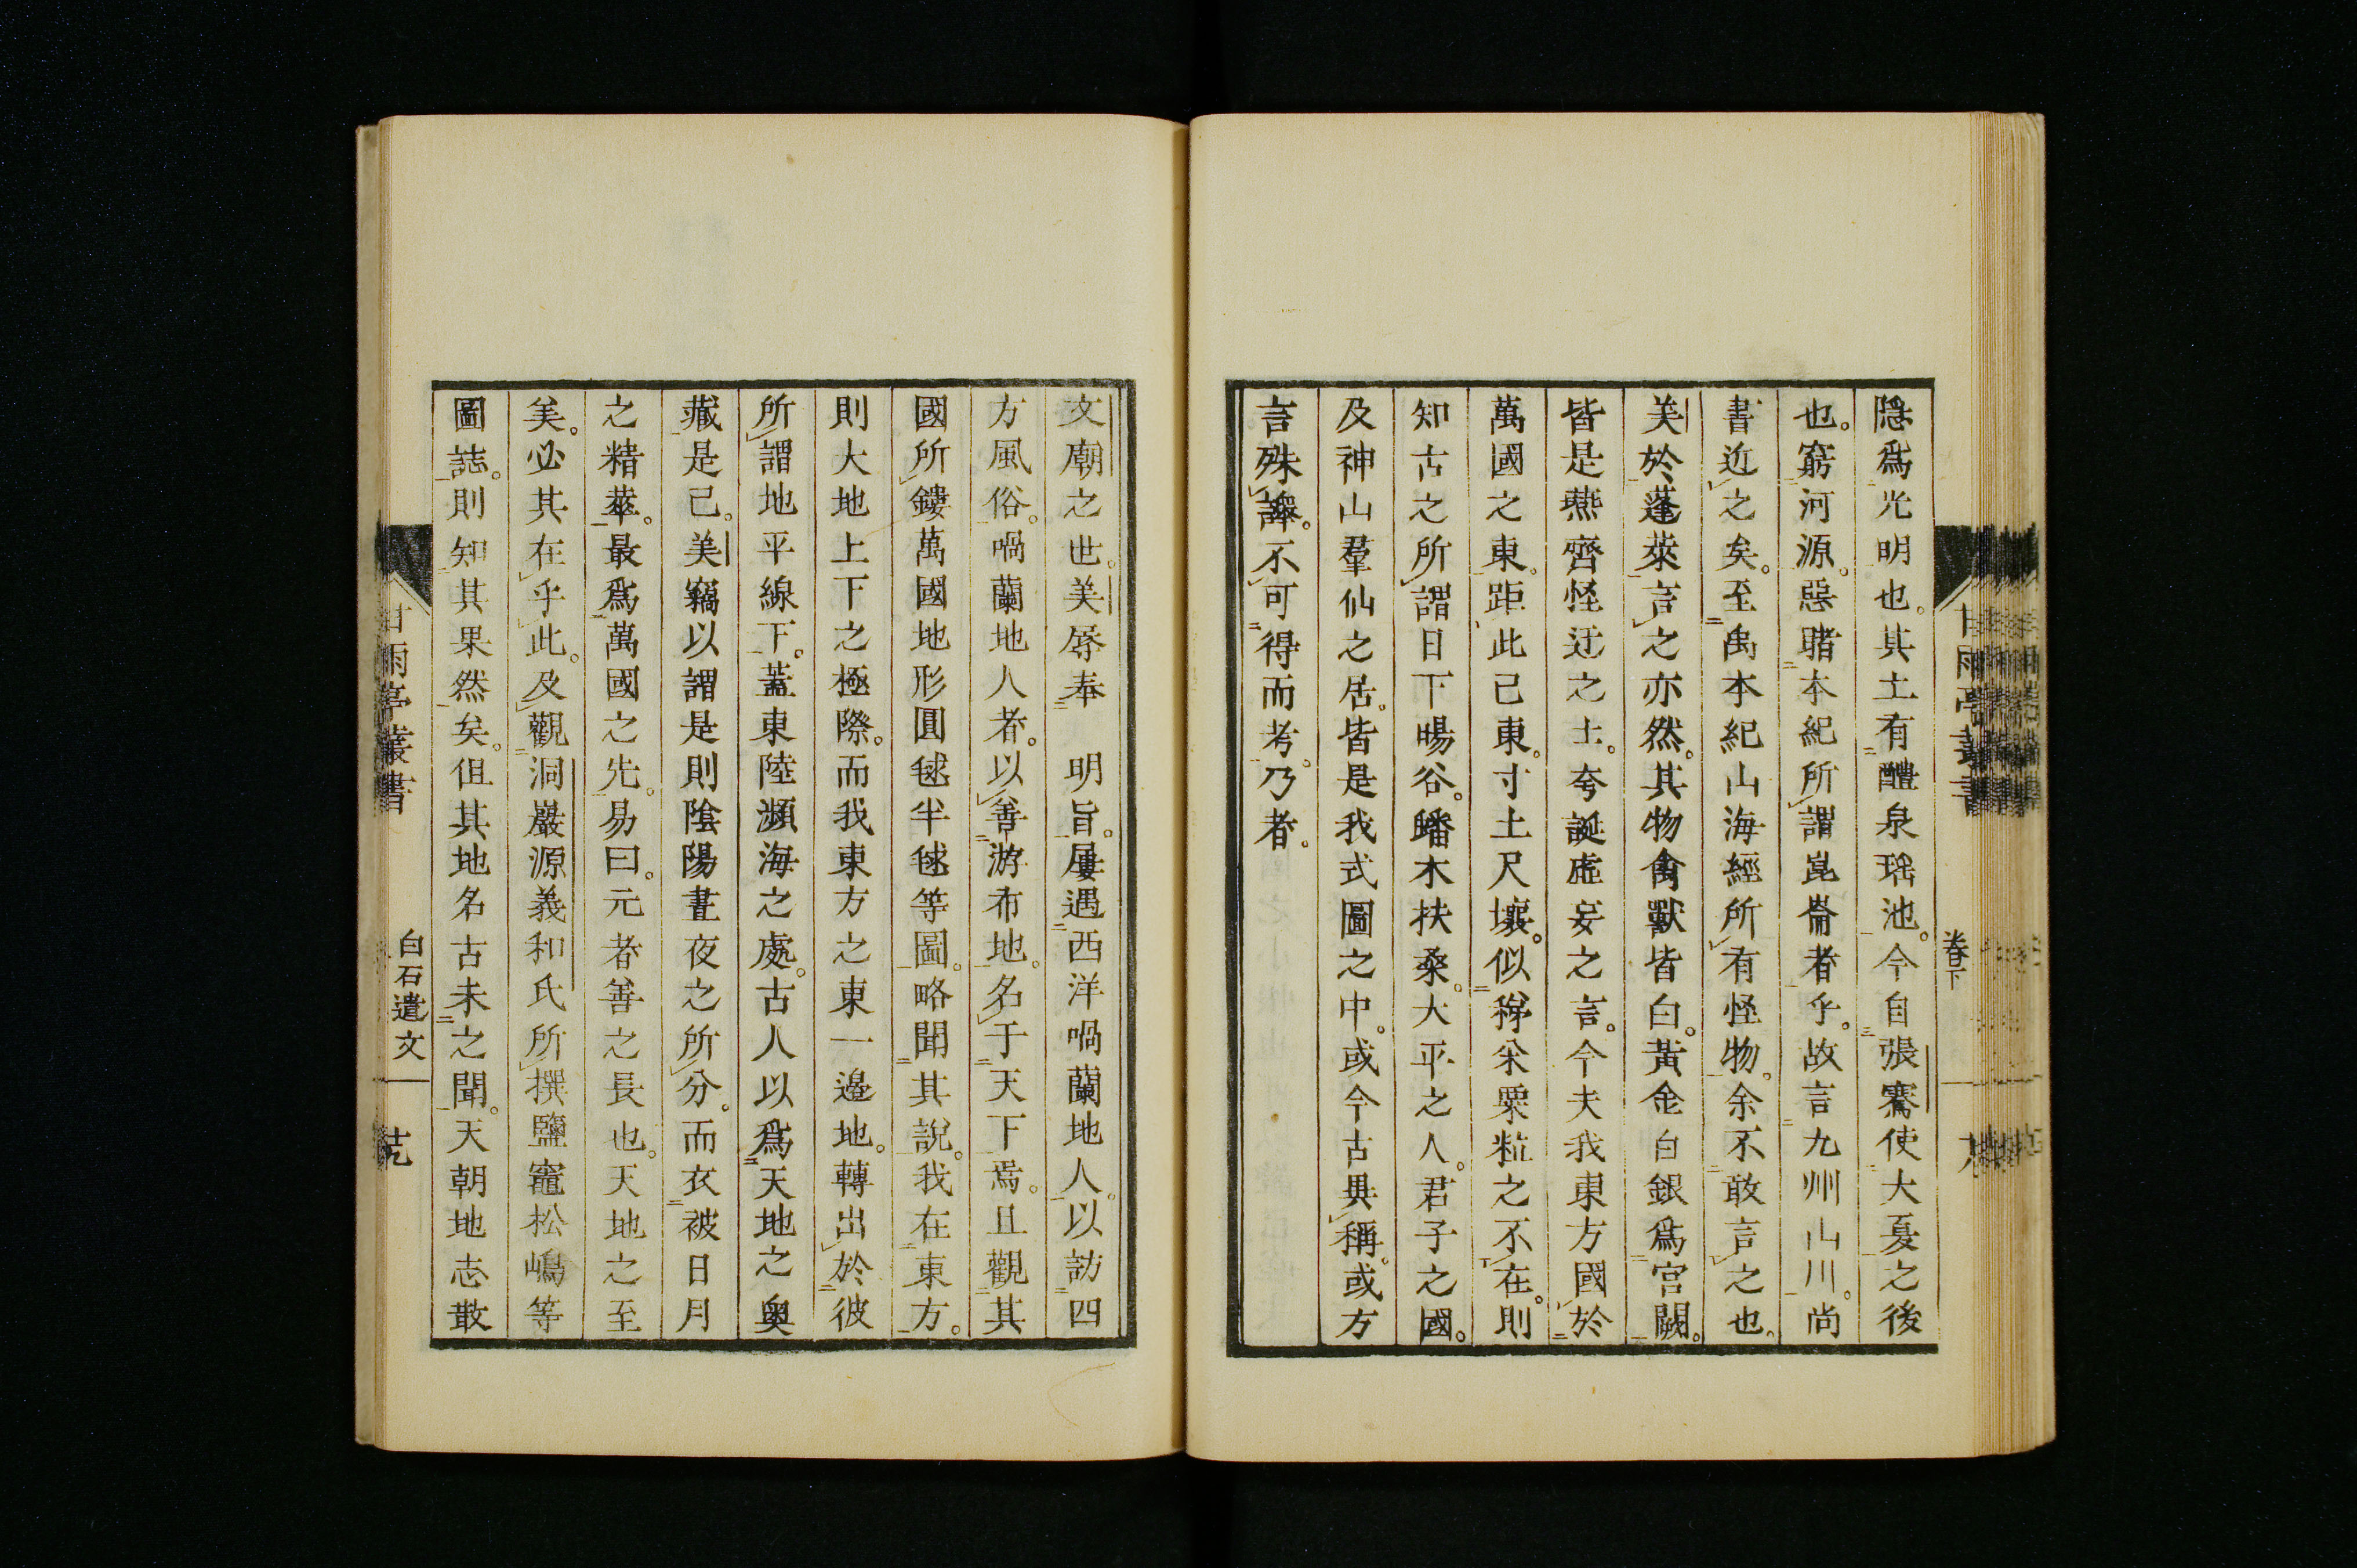 隱爲光明也。其土有醴泉瑤池。今自張騫使大夏之後
也。窮河源。惡睹本紀所謂崑崙者乎。故言九州山川。尚
書近之矣。至禹本紀山海經所有怪物。余不敢言之也。
美於蓬萊言之亦然。其物禽獸皆白。黃金白銀爲宮闕。
皆是燕齊怪迂之士。夸誕虛妄之言。今夫我東方國於
萬國之東。距此已東。寸土尺壤。似稊米粟粒之不在。則
知古之所謂日下暘谷。蟠木扶桑。大平之人。君子之國。
及神山羣仙之居。皆是我式圖之中。或今古異稱。或方
言殊譯。不可得而考。乃者。
文廟之世。美辱奉 明旨。屢遇西洋喎蘭地人。以訪四
方風俗。喎蘭地人者。以善游布地。名于天下焉。且觀其
國所鏤萬國地形圓毬半毬等圖。略聞其說。我在東方。
則大地上下之極際。而我東方之東一邊地。轉出於彼
所謂地平線下。蓋東陸瀕海之處。古人以爲天地之奧
藏是已。美竊以謂是則陰陽晝夜之所分。而衣被日月
之精華。最爲萬國之先。易曰。元者善之長也。天地之至
美。必其在乎此。及觀洞巖源義和氏所撰鹽竈松嶋等
圖誌。則知其果然矣。但其地名古未之聞。天朝地志散
甘雨亭叢書 卷下
甘雨亭叢書 白石遺文